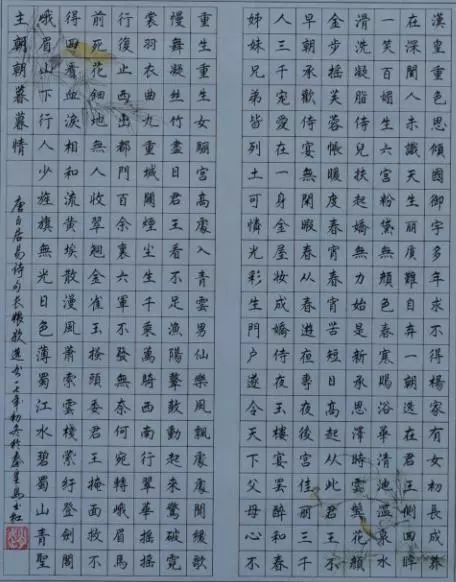 漢皇重色思傾國御宇多年求不得楊家有女初長成養
在深閨人未識天生麗質難自弃一朝選在君王側回眸
一笑百媚生六宮粉黛無顔色春寒賜浴華清池溫泉水
滑洗凝脂侍兒扶起嬌無力始是新承恩澤時雲鬢花顔
金步搖芙蓉帳暖度春宵春宵苦短日高起從此君王不
早朝承歡侍宴無閑暇春從春遊夜專夜後宮佳麗三千
人三千寵愛在一身金屋妝成嬌侍夜玉樓宴罷醉和春
姊妹兄弟皆列土可憐光彩生門户遂令天下父母心不
重生重生女驪宮高處入青雲男仙樂風飄處處聞緩歌
慢舞凝絲竹盡日君王看不足漁陽鼙鼓動起來驚破霓
裳羽衣曲九重城闕煙塵生千乘萬騎西南行翠華搖搖
行復止西出都門百余裏六軍不發無奈何宛轉峨眉馬
前死花鈿地無人收翠翹金雀玉搔頭委君王掩面救不
得回看血淚相和流黄埃散漫風蕭索雲棧縈紆登劍閣
峨眉山下行人少旌旗無光日色薄蜀江水碧蜀山青聖
主朝朝暮暮情
唐白居易诗句長恨歌選書一七年初冬於秦皇島